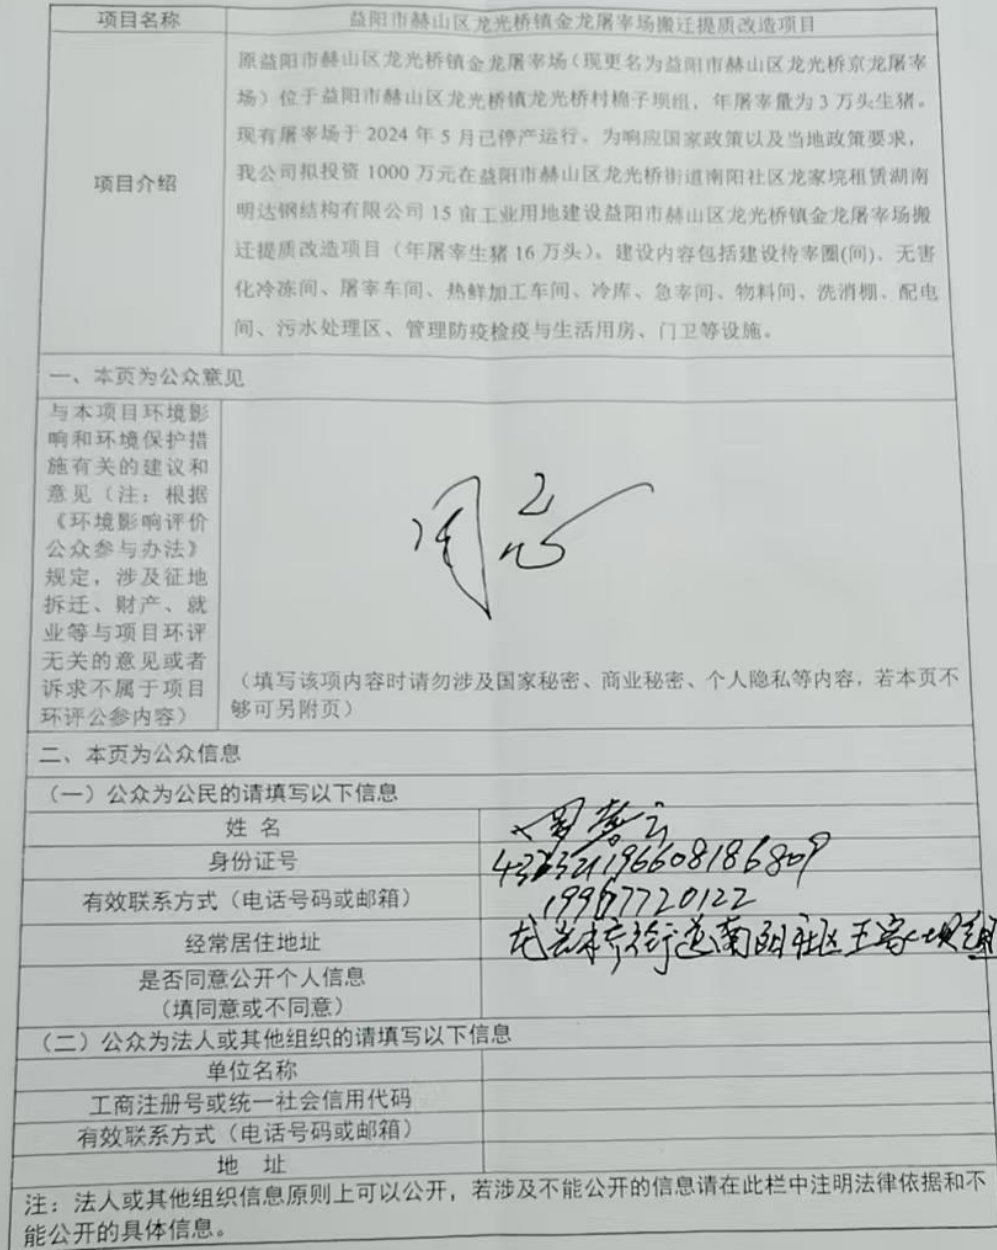 项目名称
益阳市赫山区龙光桥镇金龙屠宰场搬迁提质改造项目
项目介绍
原益阳市赫山区龙光桥镇金龙屠宰场(现更名为益阳市赫山区龙光桥京龙屠宰
场)位于益阳市赫山区龙光桥镇龙光桥村棉子坝组，年屠宰量为3万头生猪。
现有屠宰场于2024年5月已停产运行。为响应国家政策以及当地政策要求，
我公司拟投资1000万元在益阳市赫山区龙光桥街道南阳社区龙家垸租赁湖南
明达钢结构有限公司15亩工业用地建设益阳市赫山区龙光桥镇金龙屠宰场搬
迁提质改造项目（年屠宰生猪16万头）。建设内容包括建设待宰圈(间)、无害
化冷冻间、屠宰车间、热鲜加工车间、冷库、急宰间、物料间、洗消棚、配电
间、污水处理区、管理防疫检疫与生活用房、门卫等设施。
一、本页为公众意见
与本项目环境影
响和环境保护措
施有关的建议和
意见（注：根据
《环境影响评价
公众参与办法》
规定，涉及征地
拆迁、财产、就
业等与项目环评
无关的意见或者
诉求不属于项目
环评公参内容）
同意
（填写该项内容时请勿涉及国家秘密、商业秘密、个人隐私等内容，若本页不
够可另附页）
二、本页为公众信息
（一）公众为公民的请填写以下信息
姓 名
身份证号
有效联系方式（电话号码或邮箱）
19967720122
经常居住地址
龙光桥街道南阳社区王家坝组
是否同意公开个人信息
（填同意或不同意）
（二）公众为法人或其他组织的请填写以下信息
单位名称
工商注册号或统一社会信用代码
有效联系方式（电话号码或邮箱）
地 址
注：法人或其他组织信息原则上可以公开，若涉及不能公开的信息请在此栏中注明法律依据和不
能公开的具体信息。